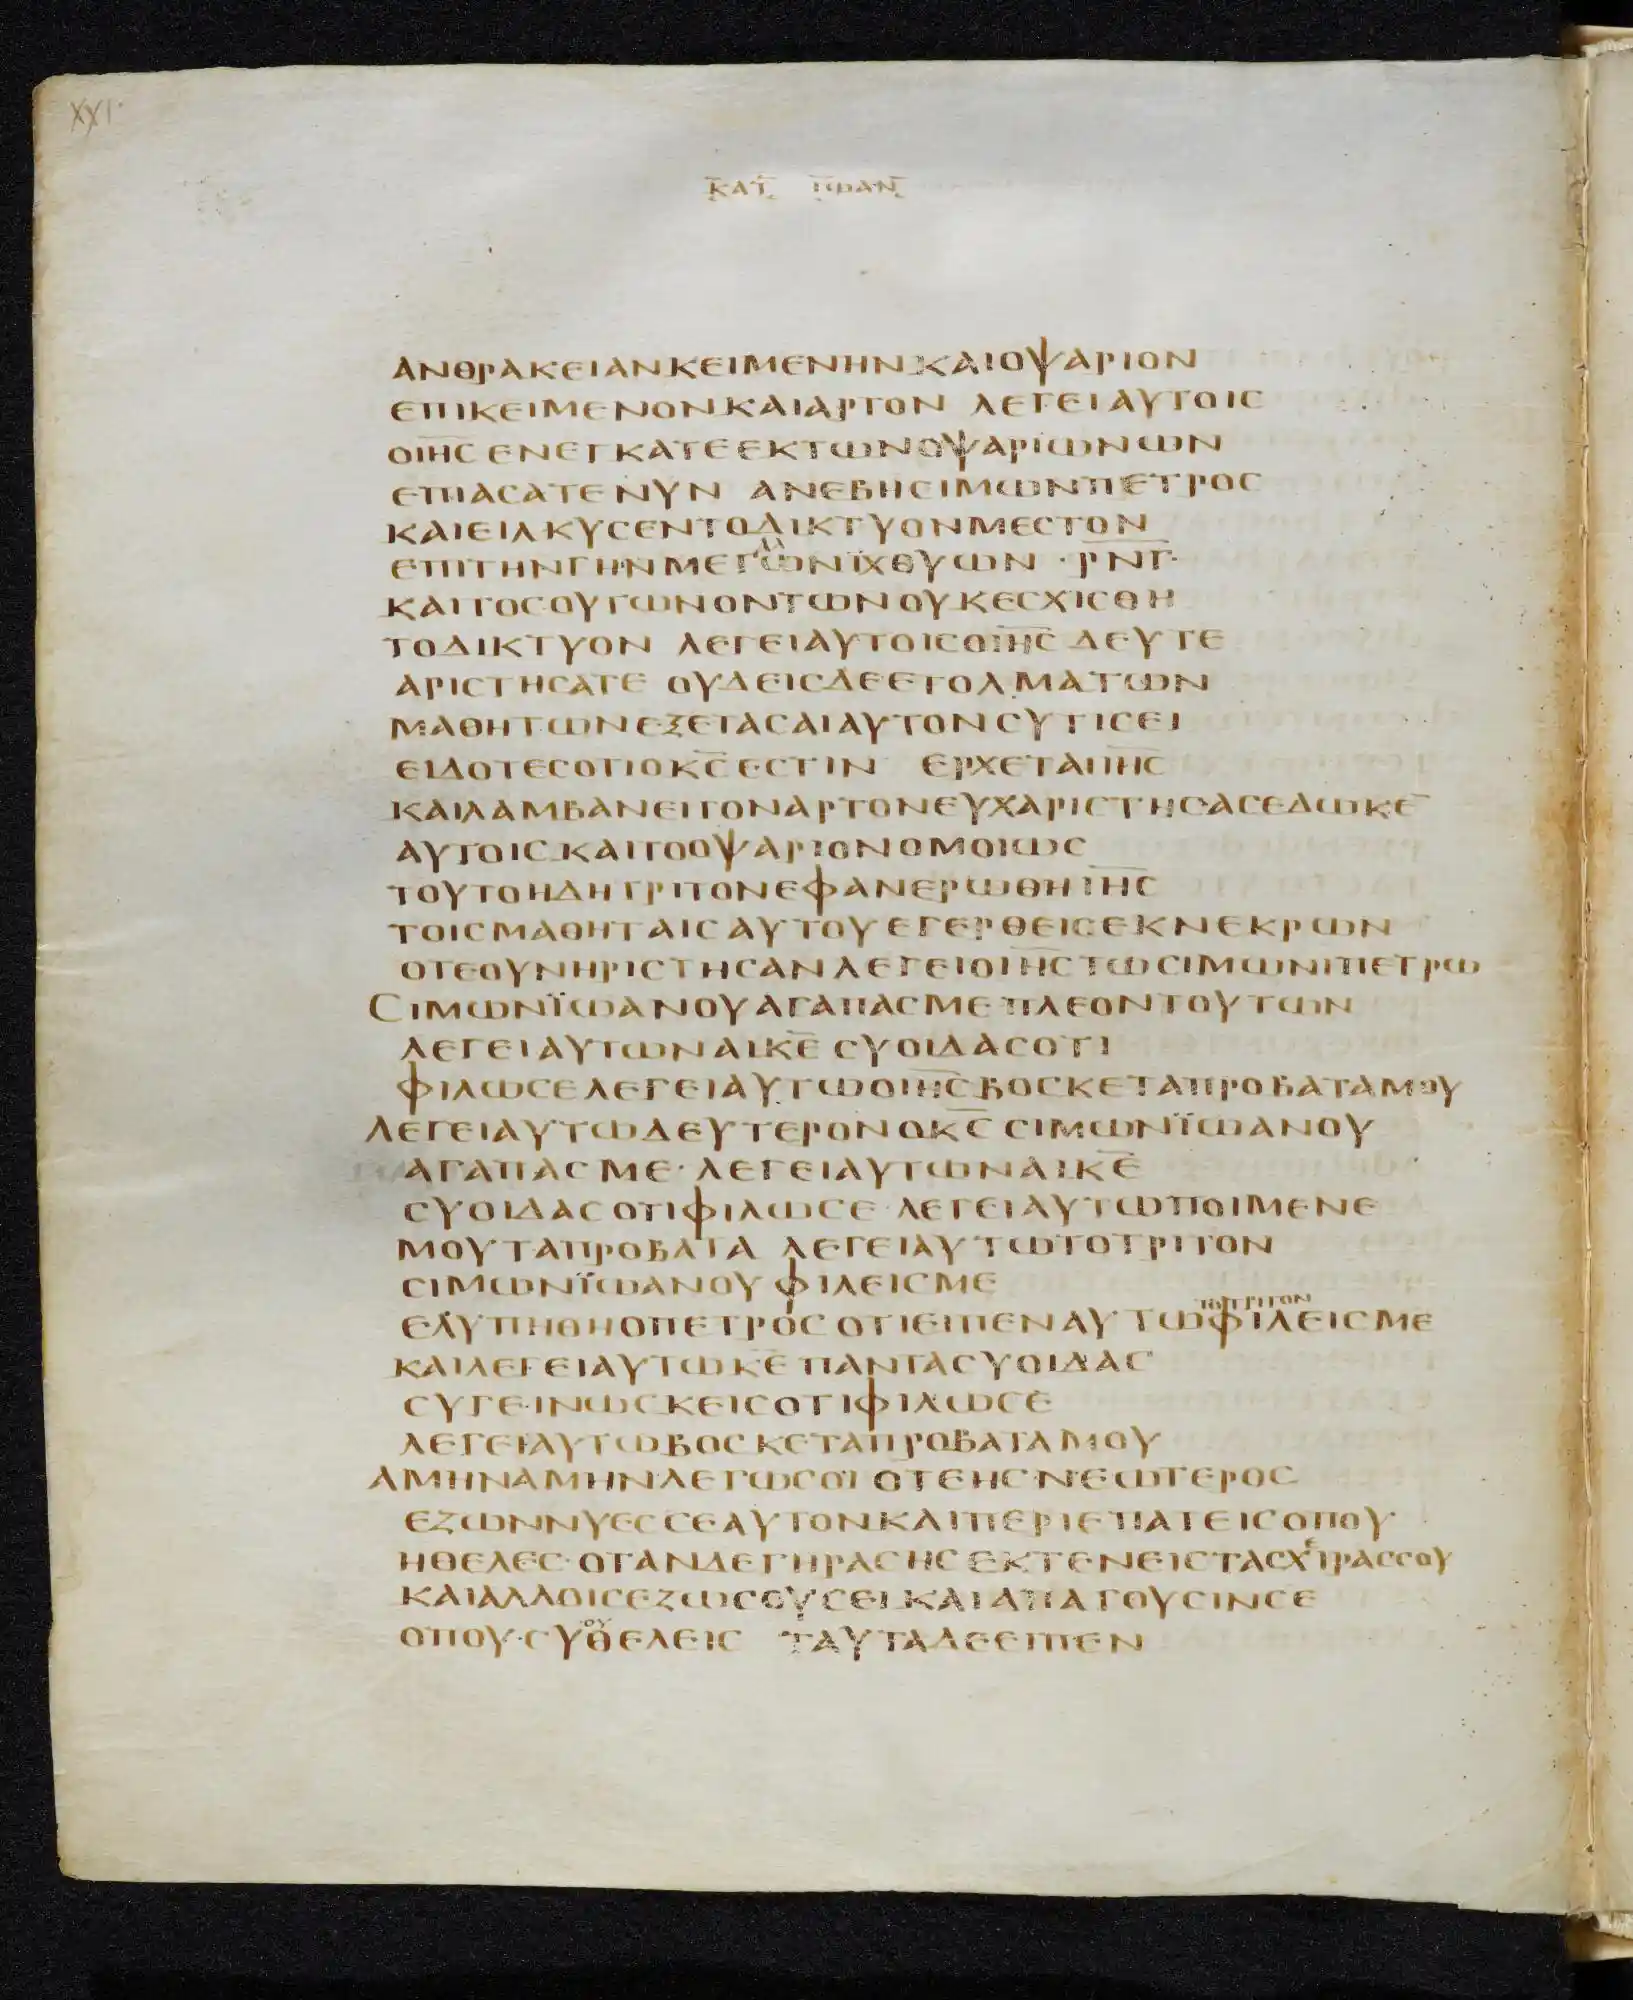 XXI·
ΚΑΤ ΙΩΑΝ
ΑΝΘΡΑΚΕΙΑΝΚΕΙΜΕΝΗΝΚΑΙΟΨΑΡΙΟΝ
ΕΠΙΚΕΙΜΕΝΟΝΚΑΙΑΡΤΟΝ ΛΕΓΕΙΑΥΤΟΙϹ
ΟΙΗ̅Ϲ̅ ΕΝΕΓΚΑΤΕΕΚΤΩΝΟΨΑΡΙΩΝΩΝ
ΕΠΙΑϹΑΤΕΝΥΝ ΑΝΕΒΗϹΙΜΩΝΠΕΤΡΟϹ
ΚΑΙΕΙΛΚΥϹΕΝΤΟΔΙΚΤΥΟΝΜΕϹΤΟΝ
ΕΠΙΤΗΝΓΗΝΜΕΓΑΛΩΝΪΧΘΥΩΝ · Ρ̅Ν̅Γ̅·
ΚΑΙΤΟϹΟΥΤΩΝΟΝΤΩΝΟΥΚΕϹΧΙϹΘΗ
ΤΟΔΙΚΤΥΟΝ ΛΕΓΕΙΑΥΤΟΙϹΟΙΗ̅Ϲ̅ ΔΕΥΤΕ
ΑΡΙϹΤΗϹΑΤΕ ΟΥΔΕΙϹΔΕΕΤΟΛΜΑΤΩΝ
ΜΑΘΗΤΩΝΕΞΕΤΑϹΑΙΑΥΤΟΝϹΥΤΙϹΕΙ
ΕΙΔΟΤΕϹΟΤΙΟΚ̅Ϲ̅ΕϹΤΙΝ ΕΡΧΕΤΑΙΙΗ̅Ϲ̅
ΚΑΙΛΑΜΒΑΝΕΙΤΟΝΑΡΤΟΝΕΥΧΑΡΙϹΤΗϹΑϹΕΔΩΚΕ̅
ΑΥΤΟΙϹΚΑΙΤΟΟΨΑΡΙΟΝΟΜΟΙΩϹ
ΤΟΥΤΟΗΔΗΤΡΙΤΟΝΕΦΑΝΕΡΩΘΗΙΗ̅Ϲ̅
ΤΟΙϹΜΑΘΗΤΑΙϹΑΥΤΟΥΕΓΕΡΘΕΙϹΕΚΝΕΚΡΩΝ
ΟΤΕΟΥΝΗΡΙϹΤΗϹΑΝΛΕΓΕΙΟΙΗ̅Ϲ̅ΤΩϹΙΜΩΝΙΠΕΤΡΩ
ϹΙΜΩΝΪΩΑΝΟΥΑΓΑΠΑϹΜΕΠΛΕΟΝΤΟΥΤΩΝ
ΛΕΓΕΙΑΥΤΩΝΑΙΚ̅Ε̅ ϹΥΟΙΔΑϹΟΤΙ
ΦΙΛΩϹΕΛΕΓΕΙΑΥΤΩΟΙΗ̅Ϲ̅ΒΟϹΚΕΤΑΠΡΟΒΑΤΑΜΟΥ
ΛΕΓΕΙΑΥΤΩΔΕΥΤΕΡΟΝΟΚ̅Ϲ̅ ϹΙΜΩΝΪΩΑΝΟΥ
ΑΓΑΠΑϹΜΕ· ΛΕΓΕΙΑΥΤΩΝΑΙΚ̅Ε̅
ϹΥΟΙΔΑϹΟΤΙΦΙΛΩϹΕ ΛΕΓΕΙΑΥΤΩΠΟΙΜΕΝΕ
ΜΟΥΤΑΠΡΟΒΑΤΑ ΛΕΓΕΙΑΥΤΩΤΟΤΡΙΤΟΝ
ϹΙΜΩΝΪΩΑΝΟΥΦΙΛΕΙϹΜΕ
ΤΟΤΡΙΤΟΝ
ΕΛΥΠΗΘΗΟΠΕΤΡΟϹΟΤΙΕΙΠΕΝΑΥΤΩΦΙΛΕΙϹΜΕ
ΚΑΙΛΕΓΕΙΑΥΤΩΚ̅Ε̅ΠΑΝΤΑϹΥΟΙΔΑϹ
ϹΥΓΕΙΝΩϹΚΕΙϹΟΤΙΦΙΛΩϹΕ
ΛΕΓΕΙΑΥΤΩΒΟϹΚΕΤΑΠΡΟΒΑΤΑΜΟΥ
ΑΜΗΝΑΜΗΝΛΕΓΩϹΟΙ ΟΤΕΗϹΝΕΩΤΕΡΟϹ
ΕΖΩΝΝΥΕϹϹΕΑΥΤΟΝΚΑΙΠΕΡΙΕΠΑΤΕΙϹΟΠΟΥ
ΗΘΕΛΕϹ·ΟΤΑΝΔΕΓΗΡΑϹΗϹΕΚΤΕΝΕΙϹΤΑϹΧΕΙΡΑϹϹΟΥ
ΚΑΙΑΛΛΟΙϹΕΖΩϹΟΥϹΕΙΚΑΙΑΠΑΓΟΥϹΙΝϹΕ
ΟΠΟΥ·ϹΥΟΥΘΕΛΕΙϹ ΤΑΥΤΑΔΕΕΙΠΕΝ